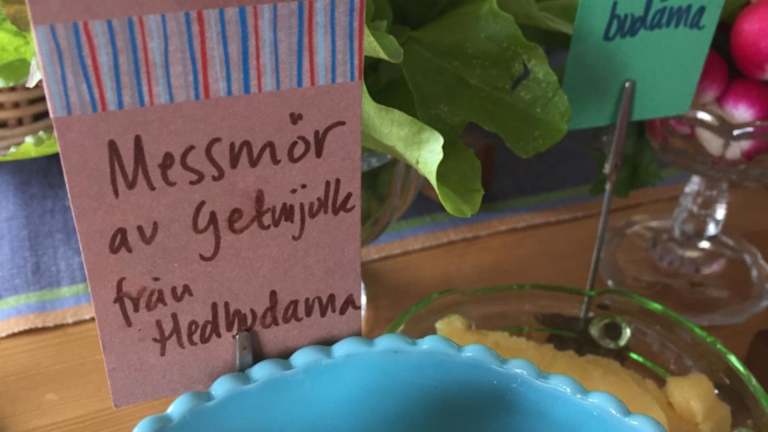 Messmör
av Getmjölk
från
Hedbudarna
budarna